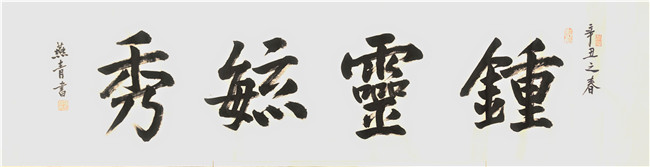 辛丑之春
鍾靈毓秀
燕青書